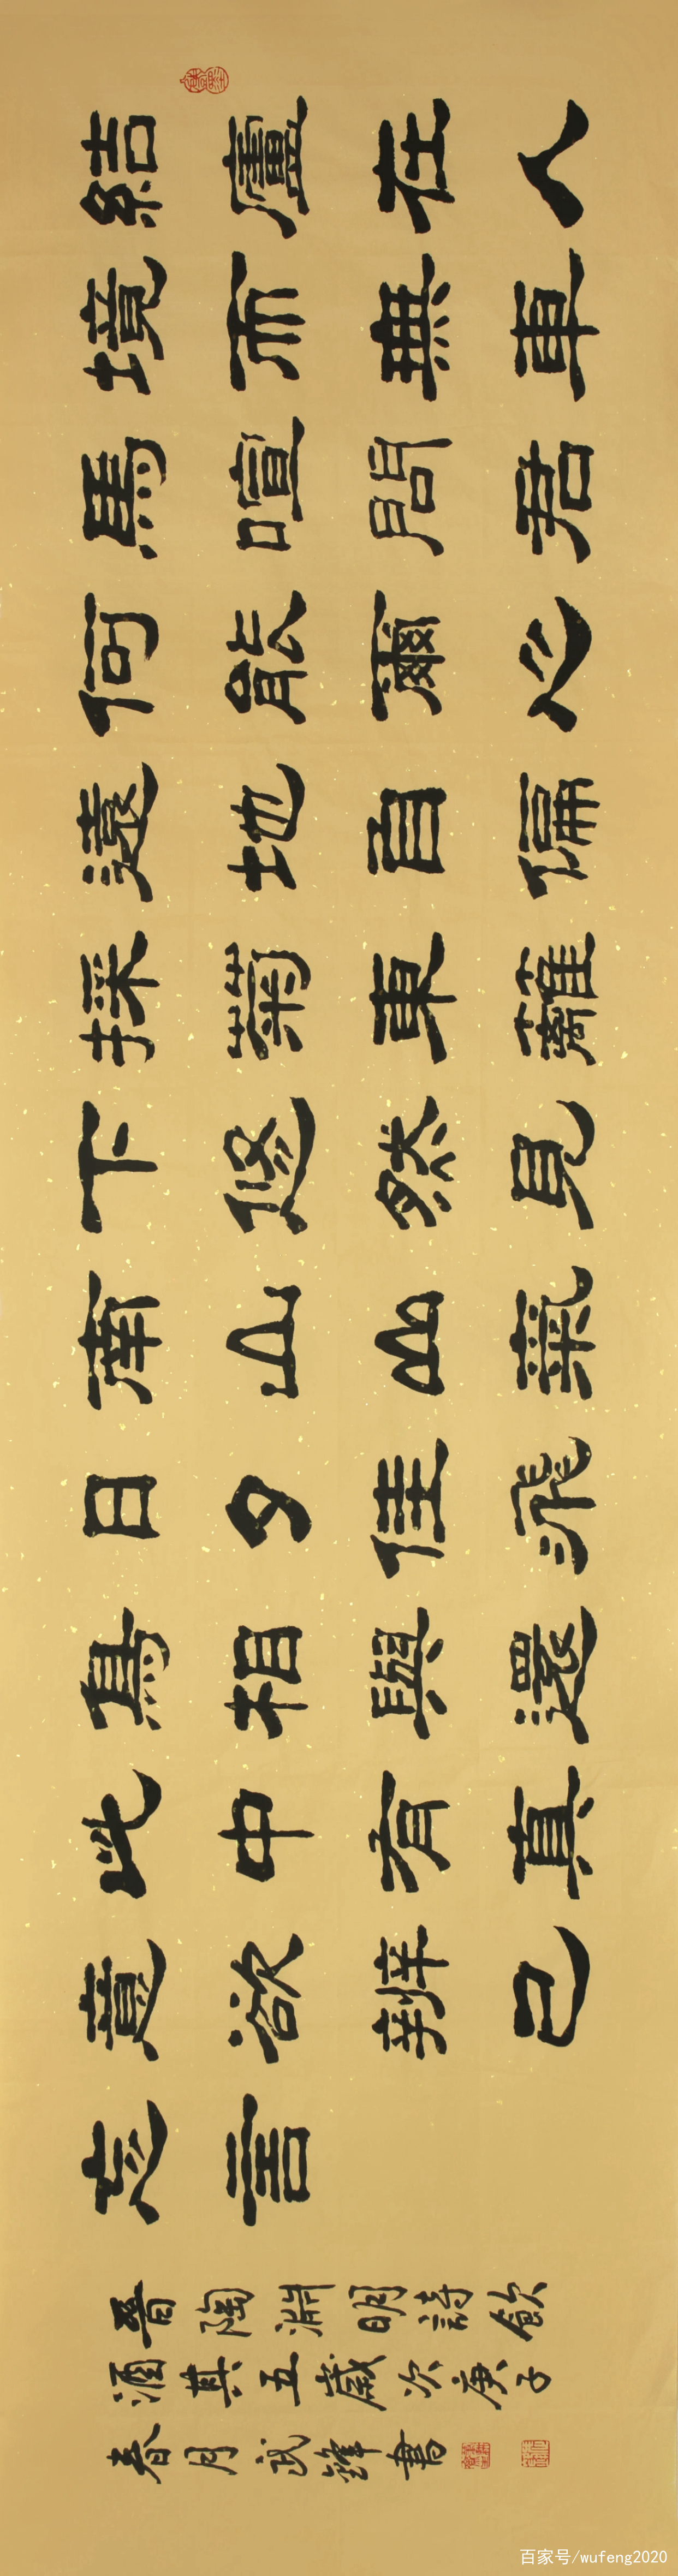 結廬在人
境而無車
馬喧問君
何能爾心
遠地自偏
採菊東籬
下悠然見
南山山氣
日夕佳飛
鳥相與還
此中有真
意欲辨已
忘言
晉陶淵明詩飲
酒其五歲次庚子
春月武鋒書
百家号/wufeng2020